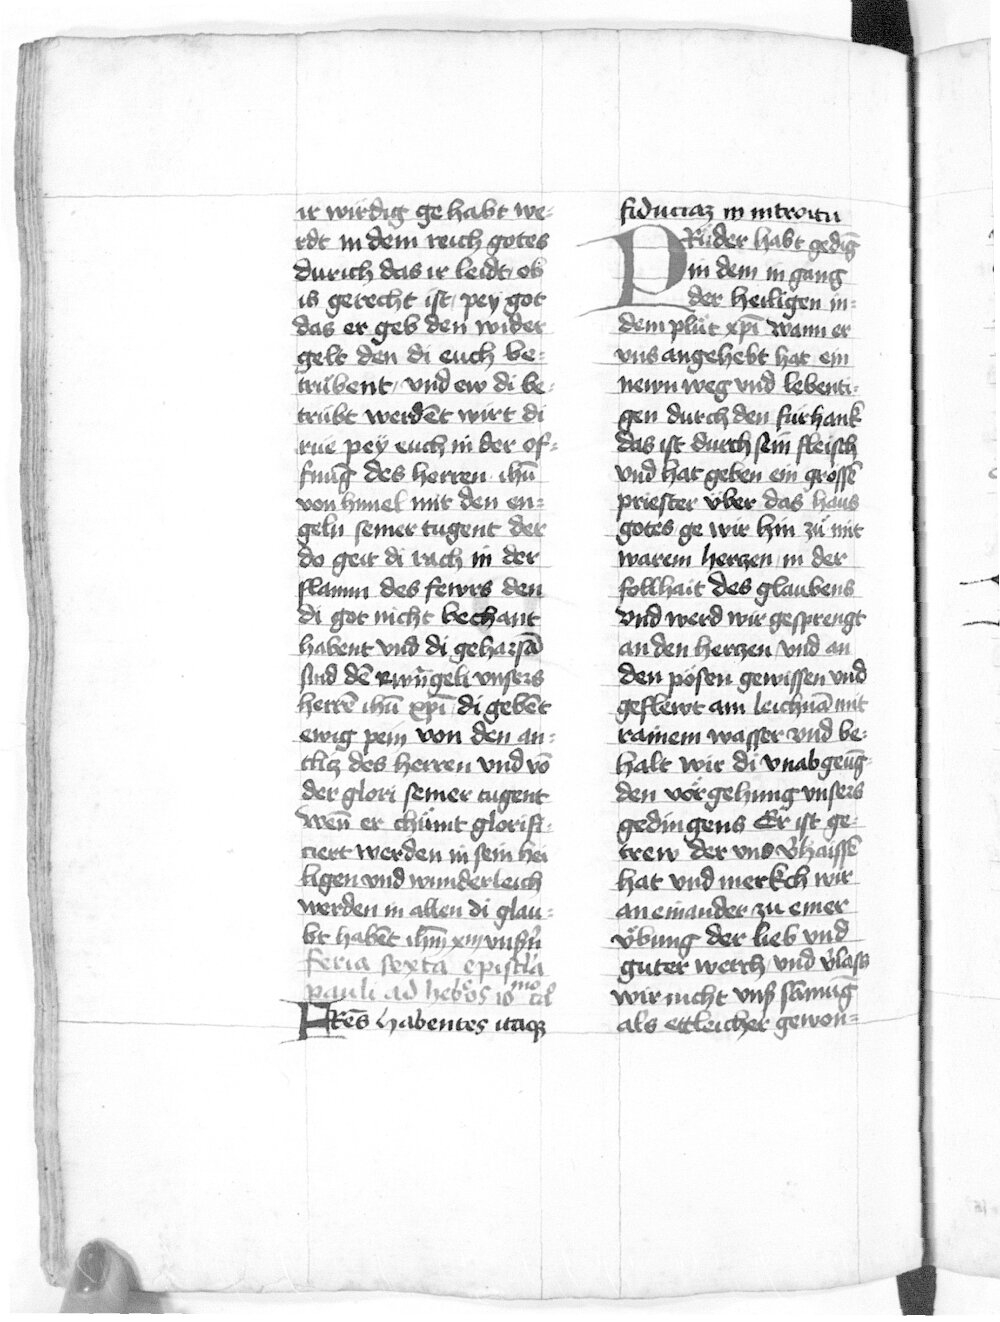 ir wirdig gehabt we-
rdt in dem reich gotes
durich das ir leidt / ob
is gerecht ist / pey got
das er geb den wider
gelt den di euch be-
trübent / vnd ew di be-
trübt werdēt wirt di
rue pey euch in der of-
fnūg des herren ihū
von himel mit den en-
geln seiner tugent der
do geit di rach in der
flamm des fewrs den
di got nicht bechant
habent vnd di gehorsā
sind dē ewāngeli vnsers
herrē ihū xp̄i / di gebēt
ewig pein von den an-
tlicz des herren vnd võ
der glori seiner tugent
Wenn er chümt glorifi-
ciert werden in sein hei
ligen vnd wunderleich
werden in allen di glau-
bt habēt ihm̄ xm̄
feria sexta epistl'a
pauli ad heb'os 10mo ca
FRēs habentes itaqz
fiduciaz in introitu
PRüder habt gedīg
in dem in gang
der heiligen in-
dem plüt xp̄i Wann er
vns angehebt hat ein
newn weg vnd lebenti-
gen durch den fürhank
das ist durch sein fleisch
vnd hat geben ein grossē
priester vber das haus
gotes ge wir hin zü mit
warem herczen in der
follhait des glaubens
vnd werd wir gesprengt
an den herczen vnd an
den pösen gewissen vnd
geflewt am leichnā mit
rainem wasser vnd be-
halt wir di vnabgeūg-
den vörgehung vnsers
gedingens Er ist ge-
trew der vns v'haissē
hat vnd merkch wir
an einander zu einer
vbung der lieb vnd
guter werch / vnd v'lass
wir nicht vnß sāmūg
als ettleicher gewon-